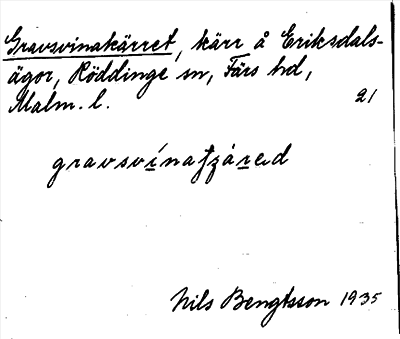 Gravsvinakärret, kärr å Eriksdals-
ägor, Röddinge sn, Färs hd,
Malm. l. 21
gravsvínatʒáred
Nils Bengtsson 1935